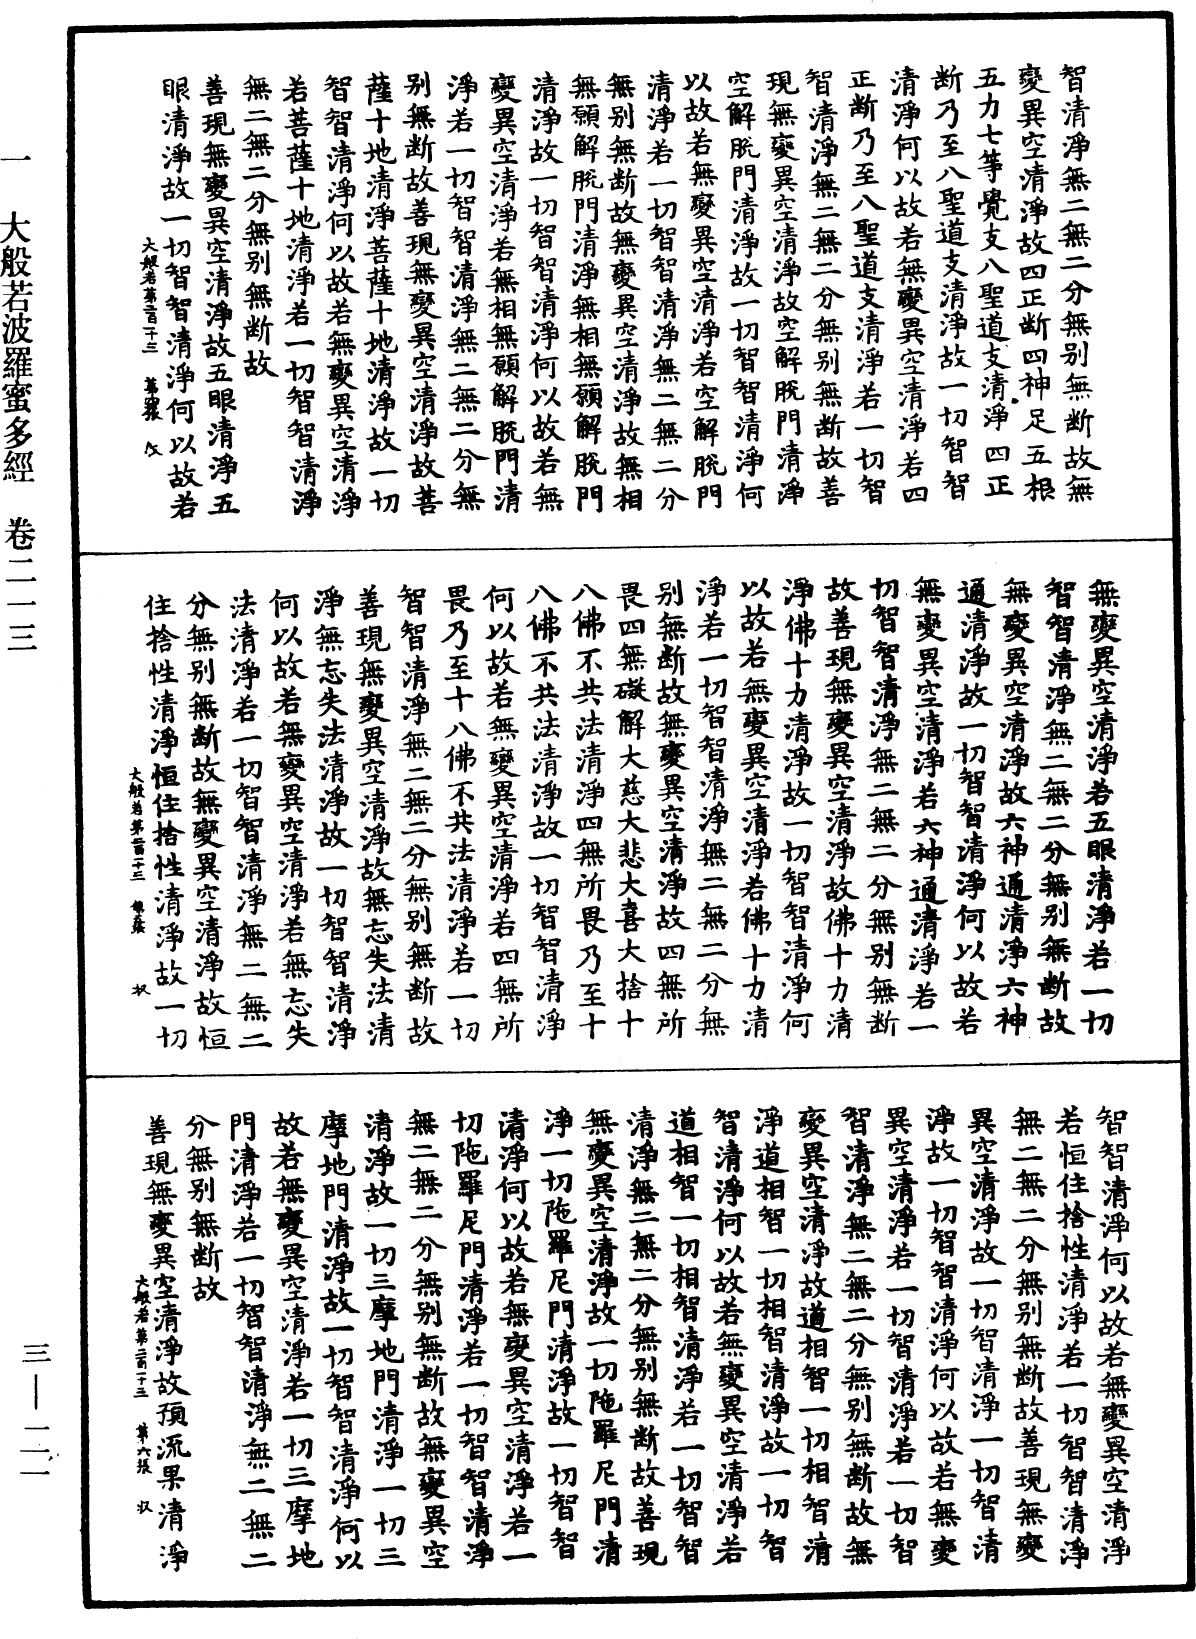 一 大般若波羅蜜多經 卷二一三
三—二一
智清淨無二無二分無別無斷故無
變異空清淨故四正斷四神足五根
五力七等覺支八聖道支清淨四正
斷乃至八聖道支清淨故一切智智
清淨何以故若無變異空清淨若四
正斷乃至八聖道支清淨若一切智
智清淨無二無二分無別無斷故善
現無變異空清淨故空解脫門清淨
空解脫門清淨故一切智智清淨何
以故若無變異空清淨若空解脫門
清淨若一切智智清淨無二無二分
無別無斷故無變異空清淨故無相
無願解脫門清淨無相無願解脫門
清淨故一切智智清淨何以故若無
變異空清淨若無相無願解脫門清
淨若一切智智清淨無二無二分無
別無斷故善現無變異空清淨故菩
薩十地清淨菩薩十地清淨故一切
智智清淨何以故若無變異空清淨
若菩薩十地清淨若一切智智清淨
無二無二分無別無斷故
善現無變異空清淨故五眼清淨五
眼清淨故一切智智清淨何以故若
大般若第二百一十三 第四張
無變異空清淨若五眼清淨若一切
智智清淨無二無二分無別無斷故
無變異空清淨故六神通清淨六神
通清淨故一切智智清淨何以故若
無變異空清淨若六神通清淨若一
切智智清淨無二無二分無別無斷
故善現無變異空清淨故佛十力清
淨佛十力清淨故一切智智清淨何
以故若無變異空清淨若佛十力清
淨若一切智智清淨無二無二分無
別無斷故無變異空清淨故四無所
畏四無礙解大慈大悲大喜大捨十
八佛不共法清淨四無所畏乃至十
八佛不共法清淨故一切智智清淨
何以故若無變異空清淨若四無所
畏乃至十八佛不共法清淨若一切
智智清淨無二無二分無別無斷故
善現無變異空清淨故無忘失法清
淨無忘失法清淨故一切智智清淨
何以故若無變異空清淨若無忘失
法清淨若一切智智清淨無二無二
分無別無斷故無變異空清淨故恒
住捨性清淨恒住捨性清淨故一切
大般若第二百一十三
智智清淨何以故若無變異空清淨
若恒住捨性清淨若一切智智清淨
無二無二分無別無斷故善現無變
異空清淨故一切智清淨一切智清
淨故一切智智清淨何以故若無變
異空清淨若一切智清淨若一切智
智清淨無二無二分無別無斷故無
變異空清淨故道相智一切相智清
淨道相智一切相智清淨故一切智
智清淨何以故若無變異空清淨若
道相智一切相智清淨若一切智智
清淨無二無二分無別無斷故善現
無變異空清淨故一切陁羅尼門清
淨一切陁羅尼門清淨故一切智智
清淨何以故若無變異空清淨若一
切陁羅尼門清淨若一切智智清淨
無二無二分無別無斷故無變異空
清淨故一切三摩地門清淨一切三
摩地門清淨故一切智智清淨何以
故若無變異空清淨若一切三摩地
門清淨若一切智智清淨無二無二
分無別無斷故
善現無變異空清淨故預流果清淨
大般若第二百一十三 第六張